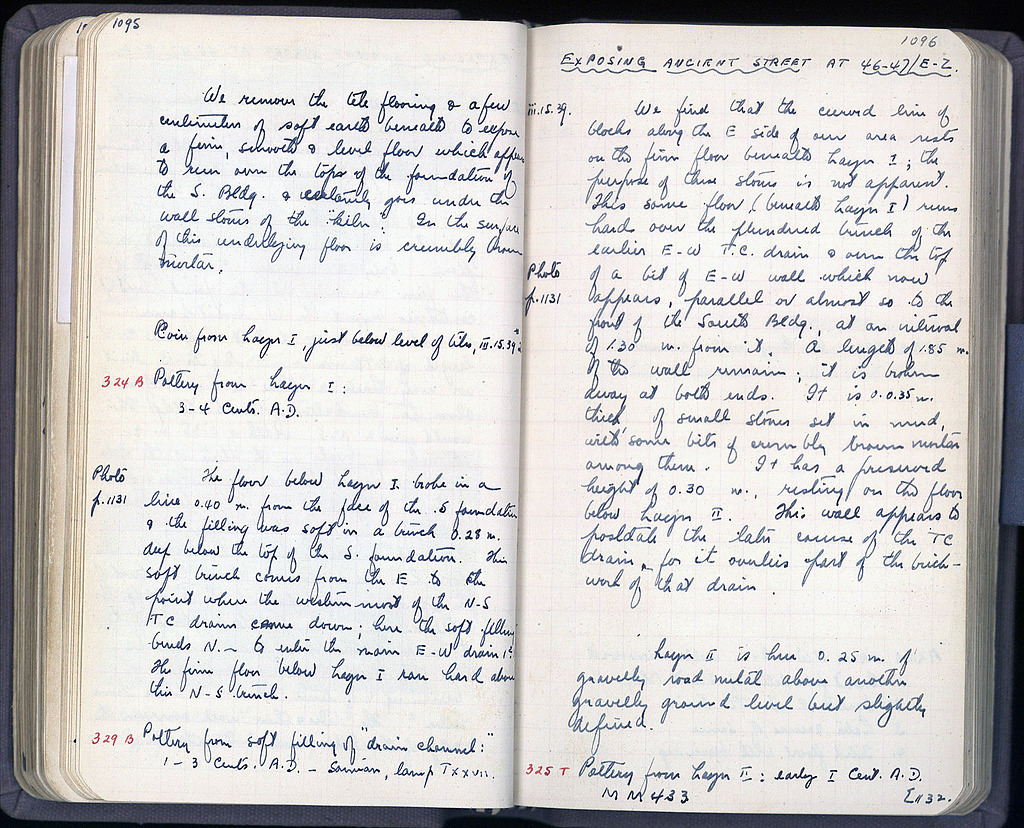 1095
We remove the tile flooring & a few
centimeters of soft earth beneath to expose
a firm, smooth & level floor which appears
to run over the tops of the foundation of
the S. Bldg. & certainly goes under the
wall stones of the "kiln". In the surface
of this underlying floor is crumbly brown
mortar.
Coin from Layer I, just below level of tiles, III.15.39
324 B Pottery from Layer I:
3-4 Cents. A.D.
Photo
p. 1131
The floor below Layer I broke in a
line 0.40 m. from the face of the S foundation
& the filling was soft in a trench 0.28 m.
deep below the top of the S. foundation. This
soft trench comes from the E to the
point where the westernmost of the N-S
TC drains come down; here the soft filling
bends N. – to enter the main E-W drain
The firm floor below Layer I ran hard above
this N-S trench.
329 B Pottery from soft filling of "drain channel:"
1-3 Cents. A.D. – Samian, lamp T xxvii.
1096
EXPOSING ANCIENT STREET AT 46-47/E-Z.
iii.15.39. We find that the curved line of
blocks along the E side of our area rests
on the firm floor beneath Layer I; the
purpose of these stones is not apparent.
This same floor (beneath Layer I) runs
hard over the plundered trench of the
earlier E-W T.C. drain & over the top
Photo
p. 1131
of a bit of E-W wall which now
appears, parallel or almost so to the
front of the South Bldg., at an interval
of 1.30 m. from it. A length of 1.85 m.
of the wall remains; it is broken
away at both ends. It is 0.35 m.
thick of small stones set in mud,
with some bits of crumbly brown mortar
among them. It has a preserved
height of 0.30 m., resting on the floor
below Layer II. This wall appears to
postdate the later course of the TC
drain, for it overlies part of the brick-
work of that drain.
Layer II is here 0.25 m. of
gravelly road metal above another
gravelly ground level but slightly
defined.
325 T Pottery from Layer II: early I Cent. A.D.
MM 433
[1132.